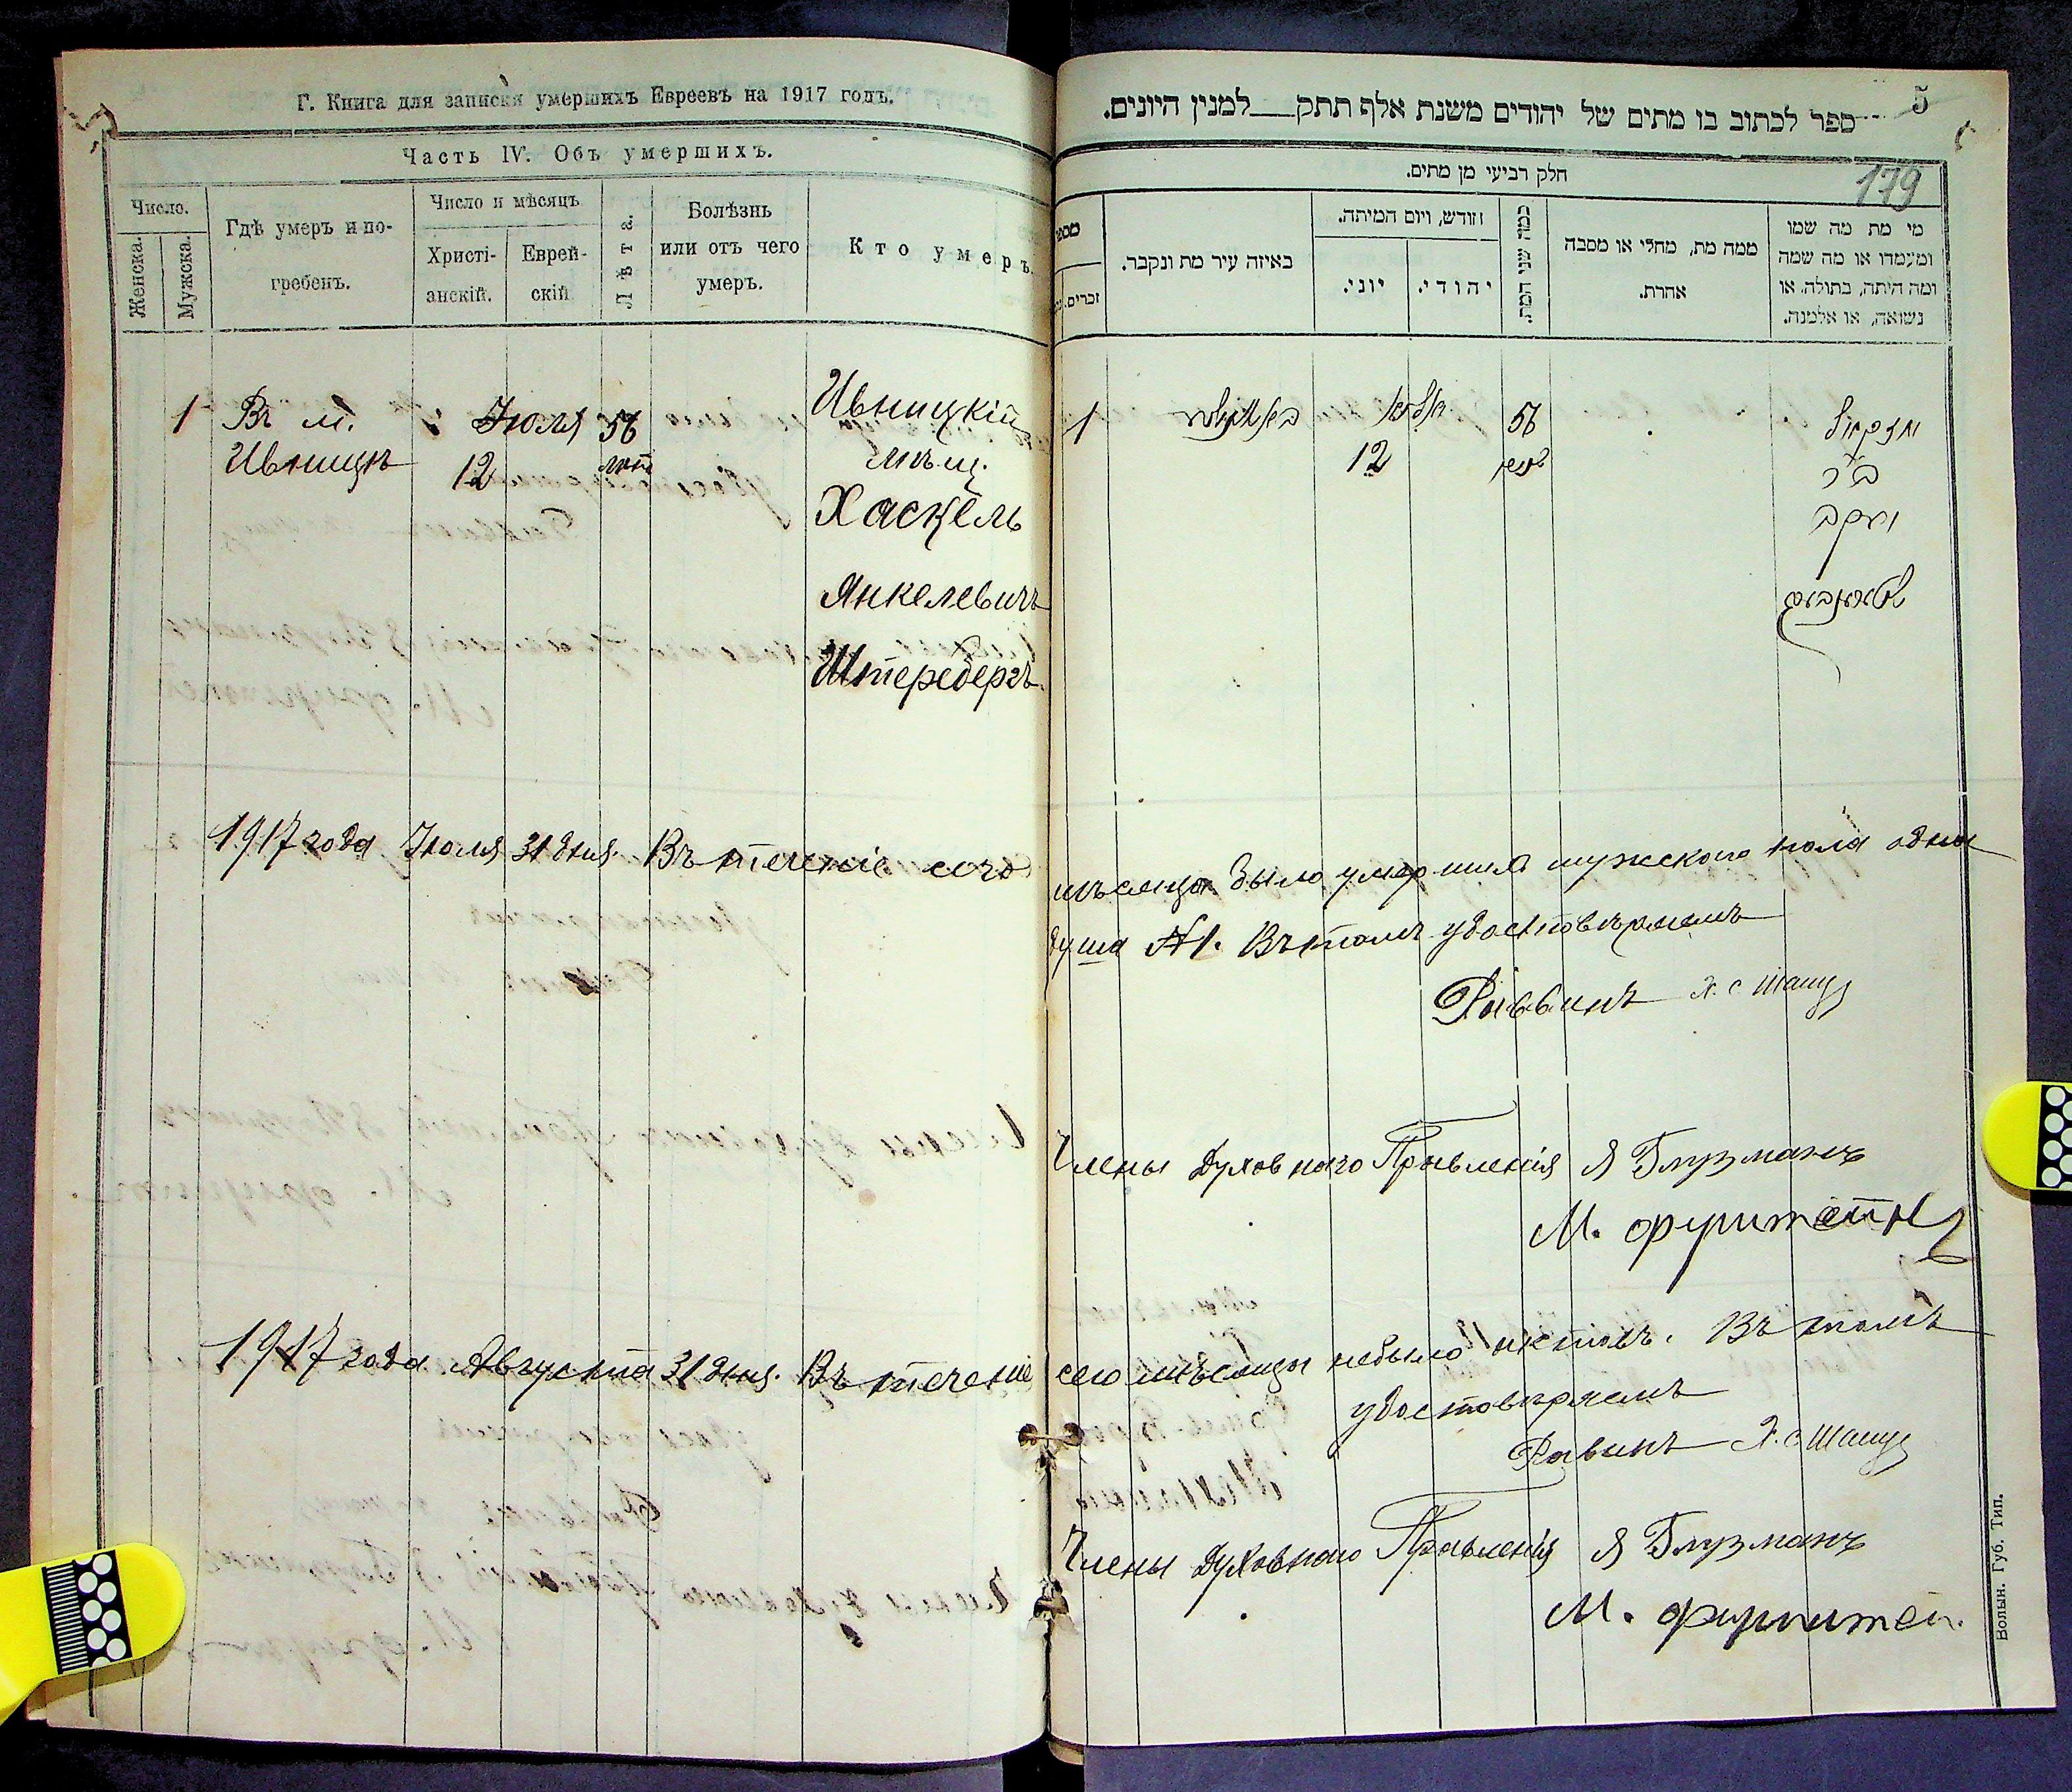 Г. Книга для записки умершихъ Евреевъ на 1917 годъ.
Часть IV. Объ умершихъ.
Число.
Женска.
Мужска.
Гдѣ умеръ и по-
гребенъ.
Число и мѣсяцъ
Христі-
анскій.
Еврей-
скій
Лѣта.
Болѣзнь
или отъ чего
умеръ.
Кто умеръ.
1 Въ м. Июля 56 Ивницкій
Ивницѣ 12 лѣтъ мѣщ.
Хаскель
Янкелевичъ
Штеренбергъ
5
ספר לכתוב בו מתים של יהודים משנת אלף תתק למנין היונים.
179
חלק רביעי מן מתים.
מספר
זכרים.
באיזה עיר מת ונקבר.
חודש, ויום המיתה.
יוני.
יהודי.
כמה שני המת.
ממה מת, מחלי או מסבה
אחרת.
מי מת מה שמו
ומעמדו או מה שמה
ומה היתה, בתולה, או
נשואה, או אלמנה.
1 56 יחזקאל
12 ב״ר
יעקב
שטערנבערג
1917 года Июля 31 дня. Въ теченіе сего мѣсяца было умершихъ мужского пола одна
душа №1. Въ томъ удостовѣряемъ
Раввинъ Х. С
Члены Духовнаго Правленія Я Глузманъ
М.
1917 года Августа 31 дня. Въ теченіе сего мѣсяцы небыло актовъ. Въ томъ
удостовѣряемъ
Равинъ Х. С
Члены Духовнаго Правленія Я Глузманъ
М.
Волын. Губ. Тип.